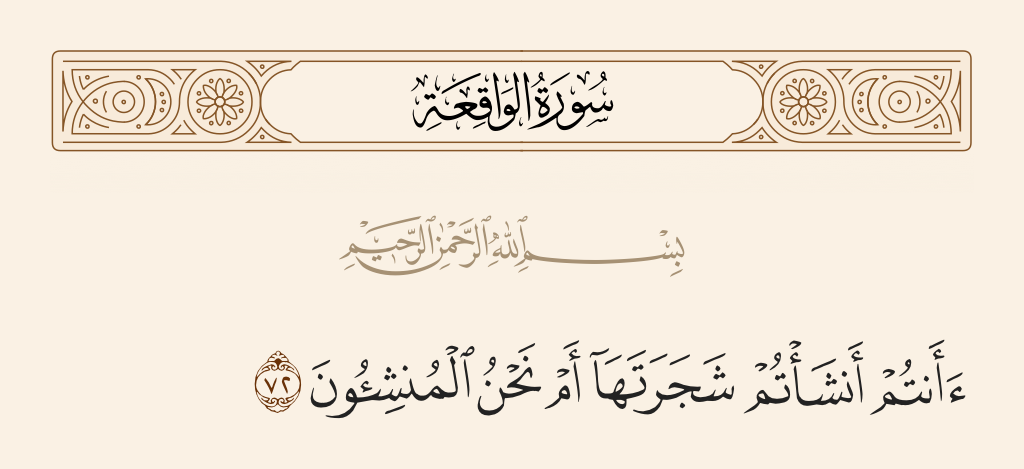 سُورَةُ الوَاقِعَةِ
بِسْمِ ٱللَّهِ ٱلرَّحْمَٰنِ ٱلرَّحِيمِ
ءَأَنتُمْ أَنشَأْتُمْ شَجَرَتَهَآ أَمْ نَحْنُ ٱلْمُنشِـُٔونَ ٧٢